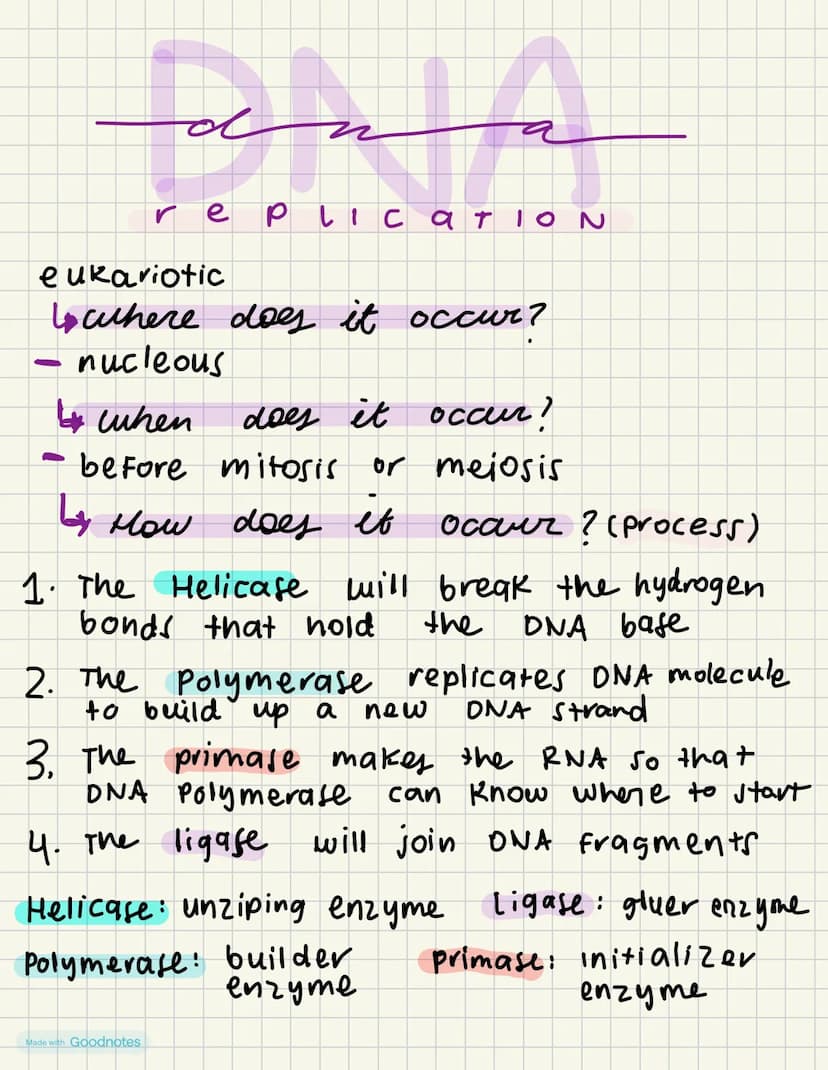 DNA
dna
replication
eukariotic
↳ where does it occur?
- nucleous
↳ when does it occur?
- before mitosis or meiosis
↳ How does it occur? (process)
1. The Helicase will break the hydrogen
bonds that hold the DNA base
2. The Polymerase replicates DNA molecule
to build up a new DNA strand
3. The primase makes the RNA so that
DNA Polymerase can know where to start
4. The ligase will join DNA fragments
Helicase: unziping enzyme Ligase: gluer enzyme
Polymerase: builder primase: initializer
enzyme enzyme
Made with Goodnotes